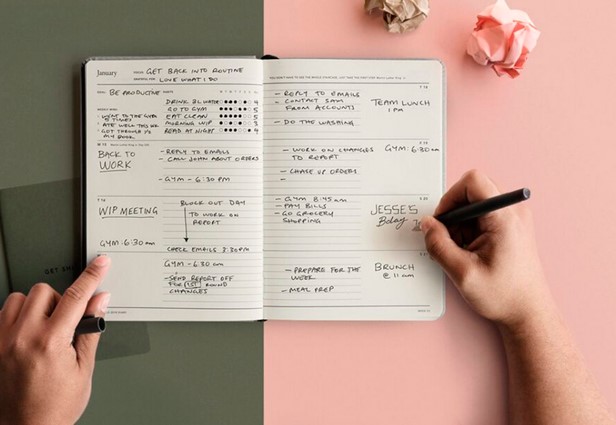 January
GET BACK INTO ROUTINE
LOVE WHAT I DO
BE PRODUCTIVE
DRINK 2L WATER 4
GO TO GYM 5
EAT CLEAN 5
MORNING WIP 3
READ AT NIGHT 4
WENT TO THE GYM
5 TIMES
ATE WELL THIS WK
GOT THROUGH 1/2
MY BOOK
BACK TO
WORK
- REPLY TO EMAILS
- CALL JOHN ABOUT ORDERS
- GYM - 6:30 PM
WIP MEETING
BLOCK OUT DAY
TO WORK ON
REPORT
GYM: 6:30 am
CHECK EMAILS 3:30PM
GYM - 6:30 am
- SEND REPORT OFF
FOR 1ST ROUND
CHANGES
- REPLY TO EMAILS
- CONTACT SAM
FROM ACCOUNTS
- DO THE WASHING
TEAM LUNCH
1 PM
- WORK ON CHANGES
TO REPORT
- CHASE UP ORDERS
-
GYM: 6:30 am
- GYM 8:45 am
- PAY BILLS
- GO GROCERY
SHOPPING
JESSE'S
Bday
- PREPARE FOR THE
WEEK
- MEAL PREP
BRUNCH
@ 11 am